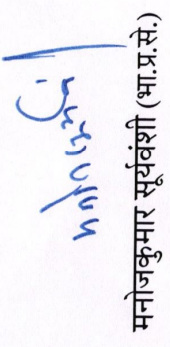 मनोजकुमार सूर्यवंशी (भा.प्र.से.)